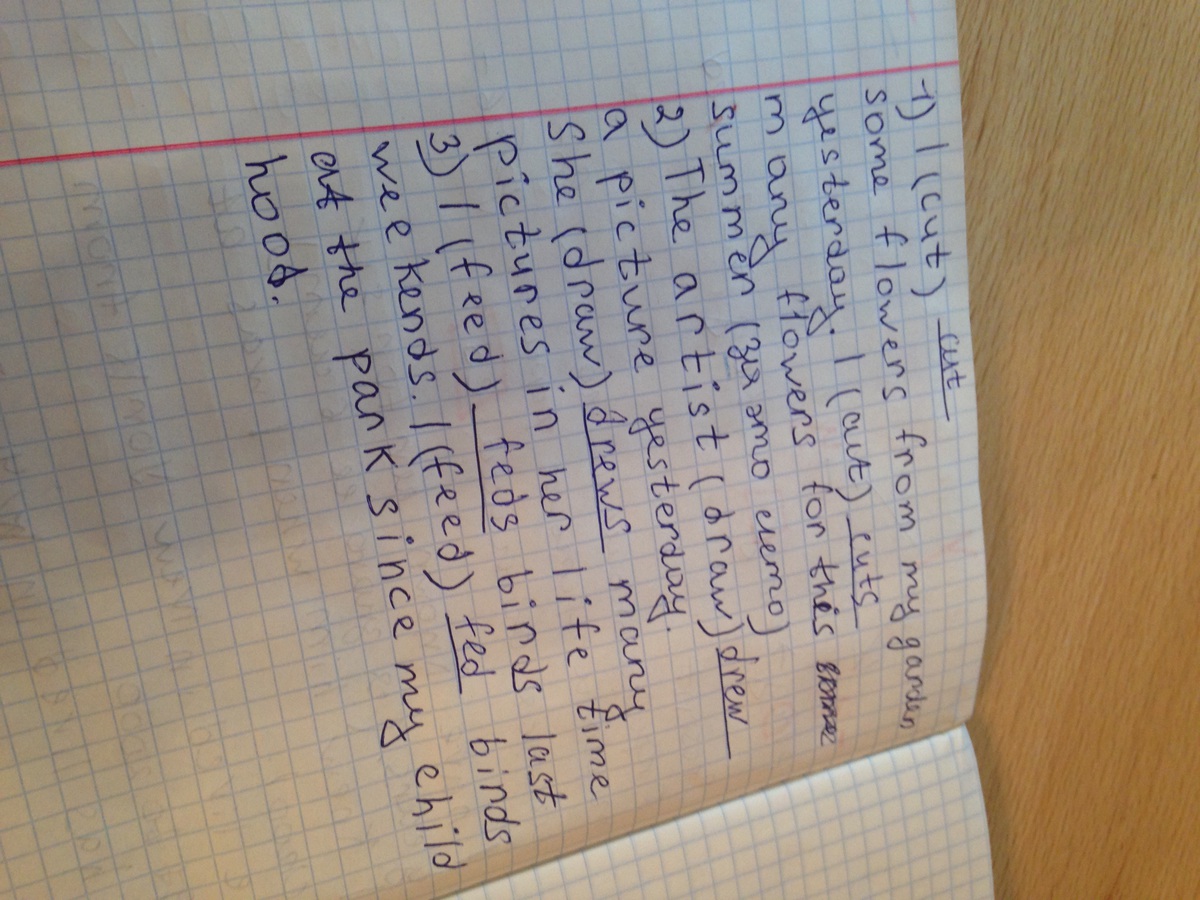 1) I (cut) cut
some flowers from my garden
yesterday. I (cut) cuts
many flowers for this
summer (за это лето)
2) The artist (draw) drew
a picture yesterday.
She (draw) drews many
pictures in her life time
3) I (feed) feds birds last
weekends. I (feed) fed birds
at the park since my child
hood.